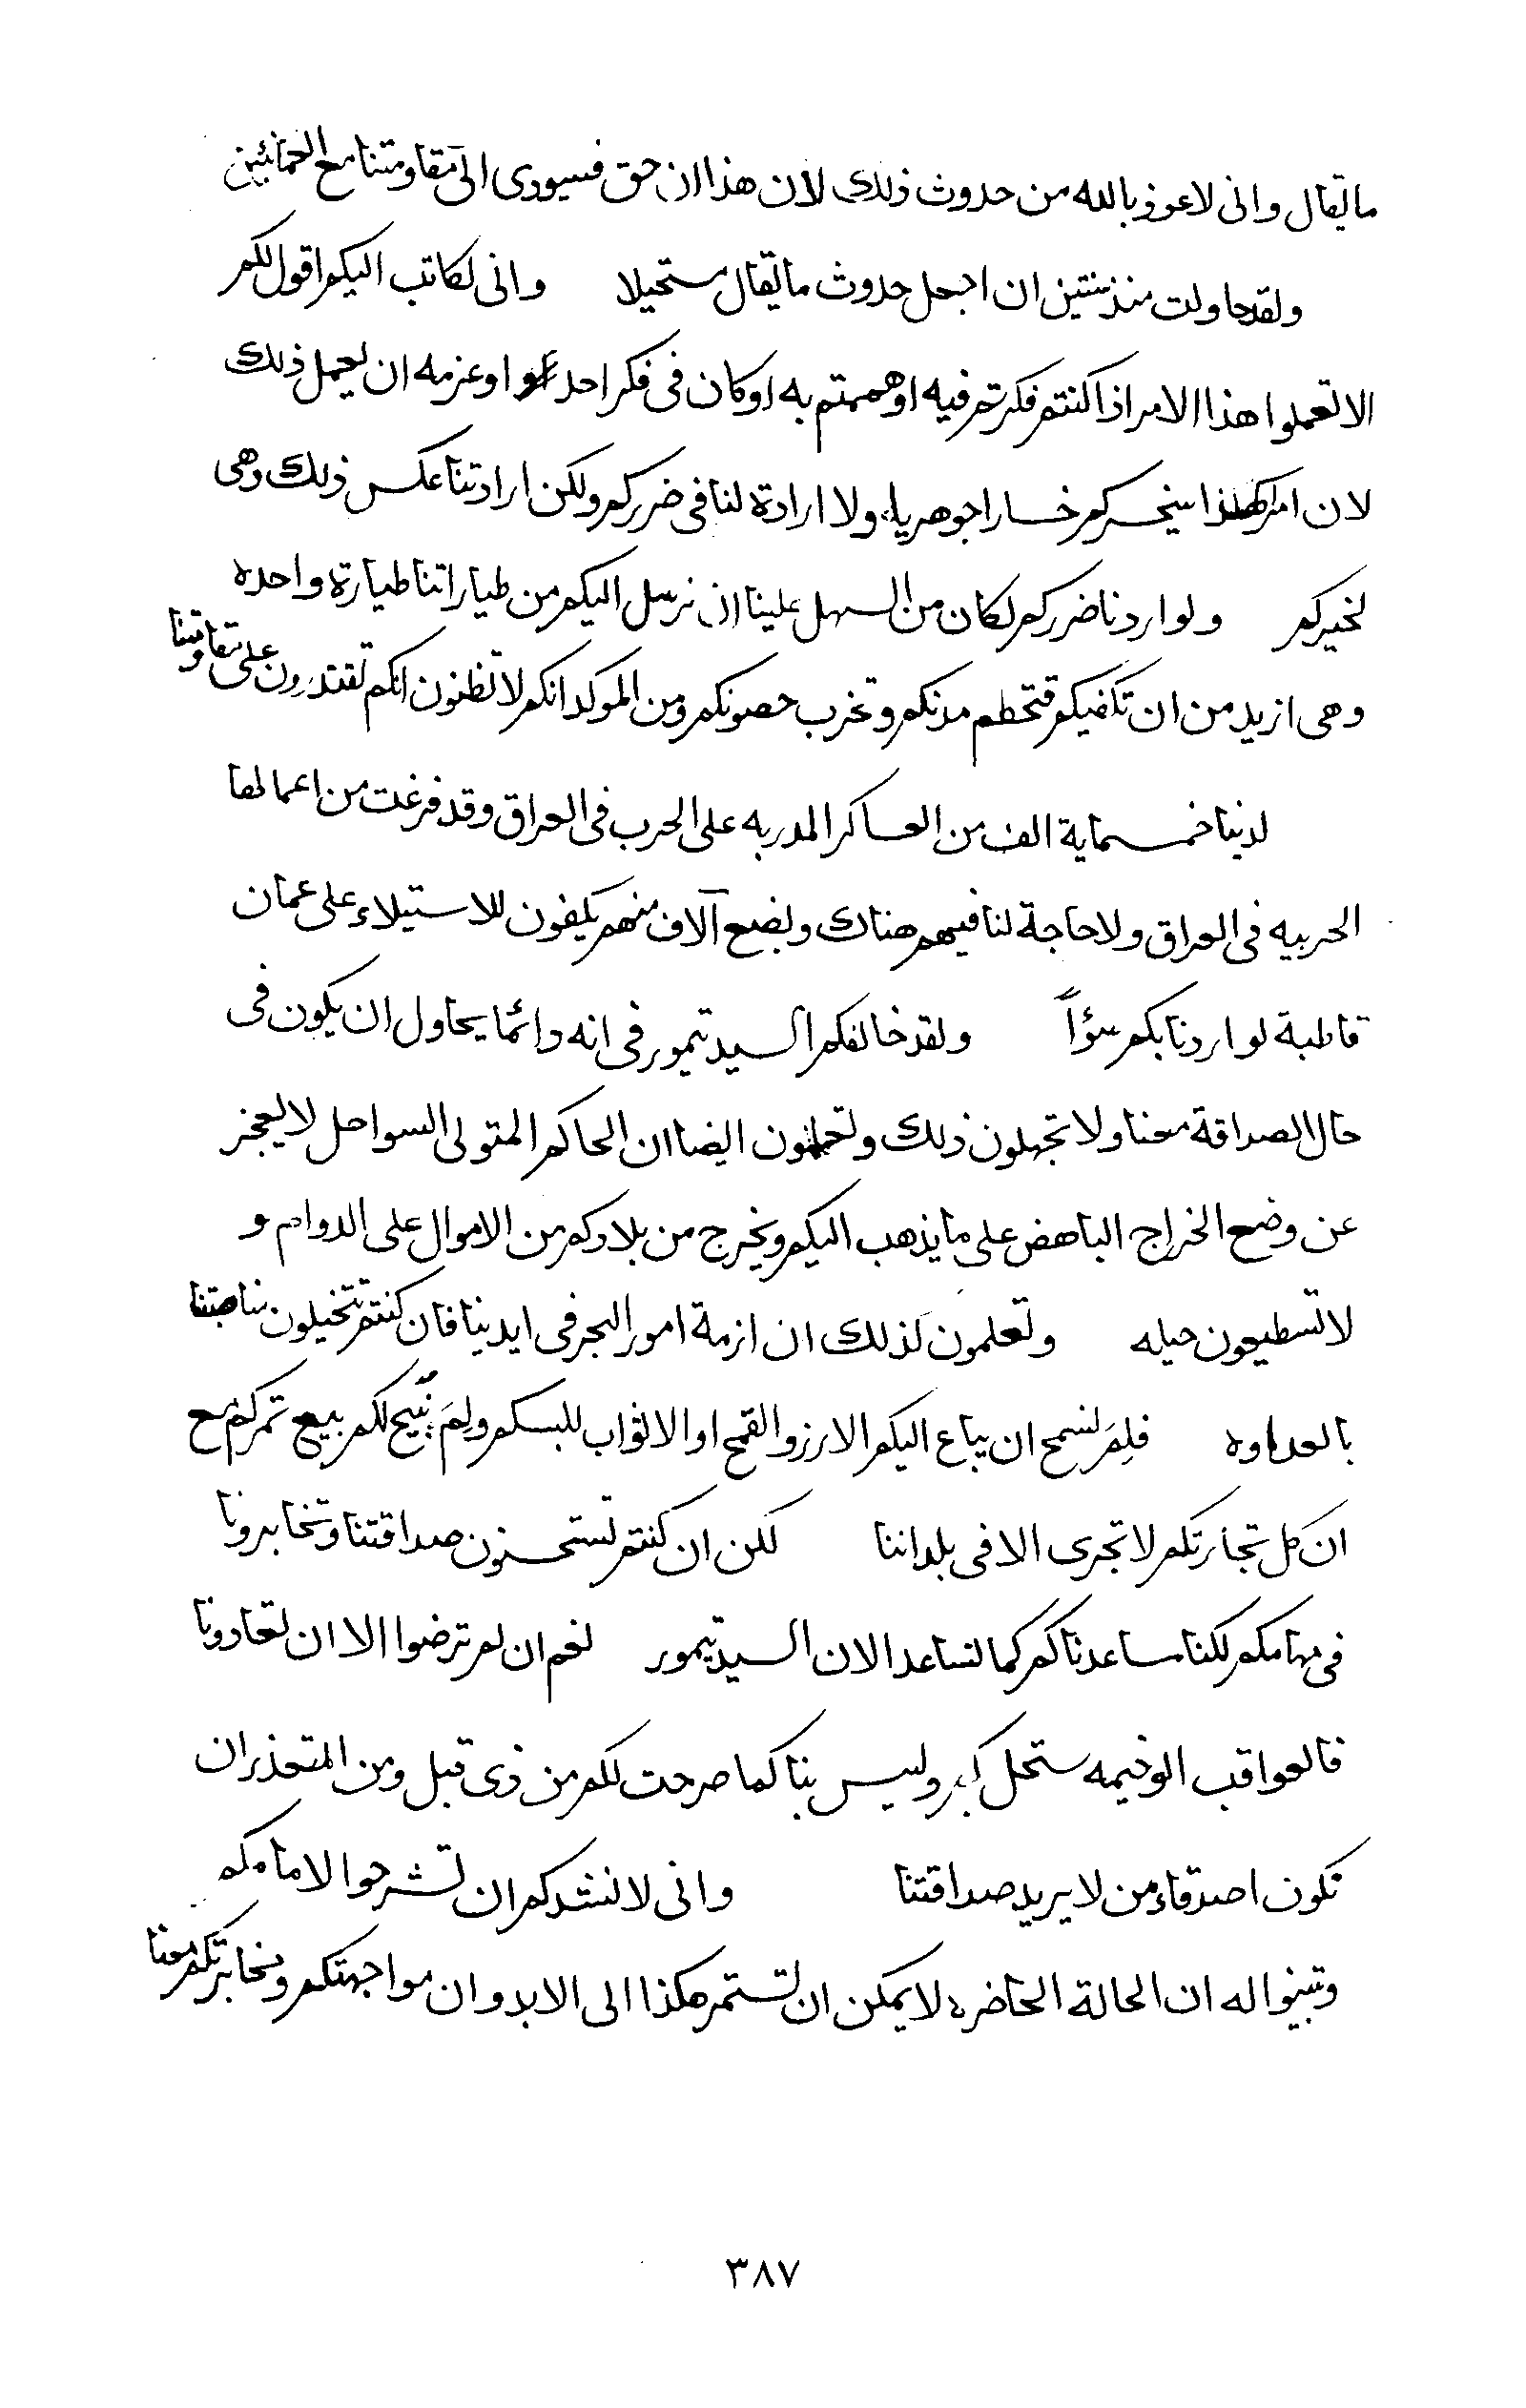 ما يقال وانى لاعوذ بالله من حدوث ذلك لان هذا ان حق فسيودى الى مقاومتنا مع العمانيين
ولقد حاولت منذ سنتين ان اجعل حدوث ما يقال مستحيلا وانى لكاتب اليكم اقول لكم
الا تعملوا هذا الامر اذا كنتم فكرتم فيه او هممتم به او كان فى فكر احد او عزمه ان يعمل ذلك
لان امرا كهذا سيخسركم خسارا جوهريا ولا ارادة لنا فى ضرركم ولكن ارادتنا عكس ذلك وهى
لخيركم ولو اردنا ضرركم لكان من السهل علينا ان نرسل اليكم من طياراتنا طيارة واحده
وهى ازيد من ان تكفيكم فتحطم مدنكم وتخرب حصونكم ومن الموكد انكم لا تظنون انكم تقتدرون على مقاومتنا
لدينا خمسماية الف من العساكر المدربه على الحرب فى العراق وقد فرغت من اعمالها
الحربيه فى العراق ولا حاجة لنا فيهم هناك وبضع آلاف منهم يكفون للاستيلاء على عمان
قاطبة لو اردنا بكم سؤاً ولقد خالفكم السيد تيمور فى انه دائما يحاول ان يكون فى
حال الصداقة معنا ولا تجهلون ذلك وتعلمون ايضا ان الحاكم المتولى السواحل لا يعجز
عن وضع الخراج الباهض على ما يذهب اليكم ويخرج من بلادكم من الاموال على الدوام و
لا تسطيعون حيله وتعلمون كذلك ان ازمة امور البحر فى ايدينا فان كنتم تتخيلون مناصبتنا
بالعداوه فلِمَ نسمح ان يباع اليكم الارز والقمح او الاثواب للبسكم ولِمَ نبيح لكم بيع تمركم مع
ان كل تجارتكم لا تجرى الا فى بلداننا لكن ان كنتم تستحسنون صداقتنا وتخابرونا
فى مهامكم لكنا ساعدناكم كما نساعد الان السيد تيمور نعم ان لم ترضوا الا ان تعادونا
فالعواقب الوخيمه ستحل بكم وليس بنا كما صرحت لكم من ذى قبل ومن المتعذر ان
نكون اصدقاء من لا يريد صداقتنا وانى لانشدكم ان تشرحوا لامامكم
وتبينوا له ان الحالة الحاضره لا يمكن ان تستمر هكذا الى الابد وان مواجهتكم ومخابرتكم معنا
٣٨٧